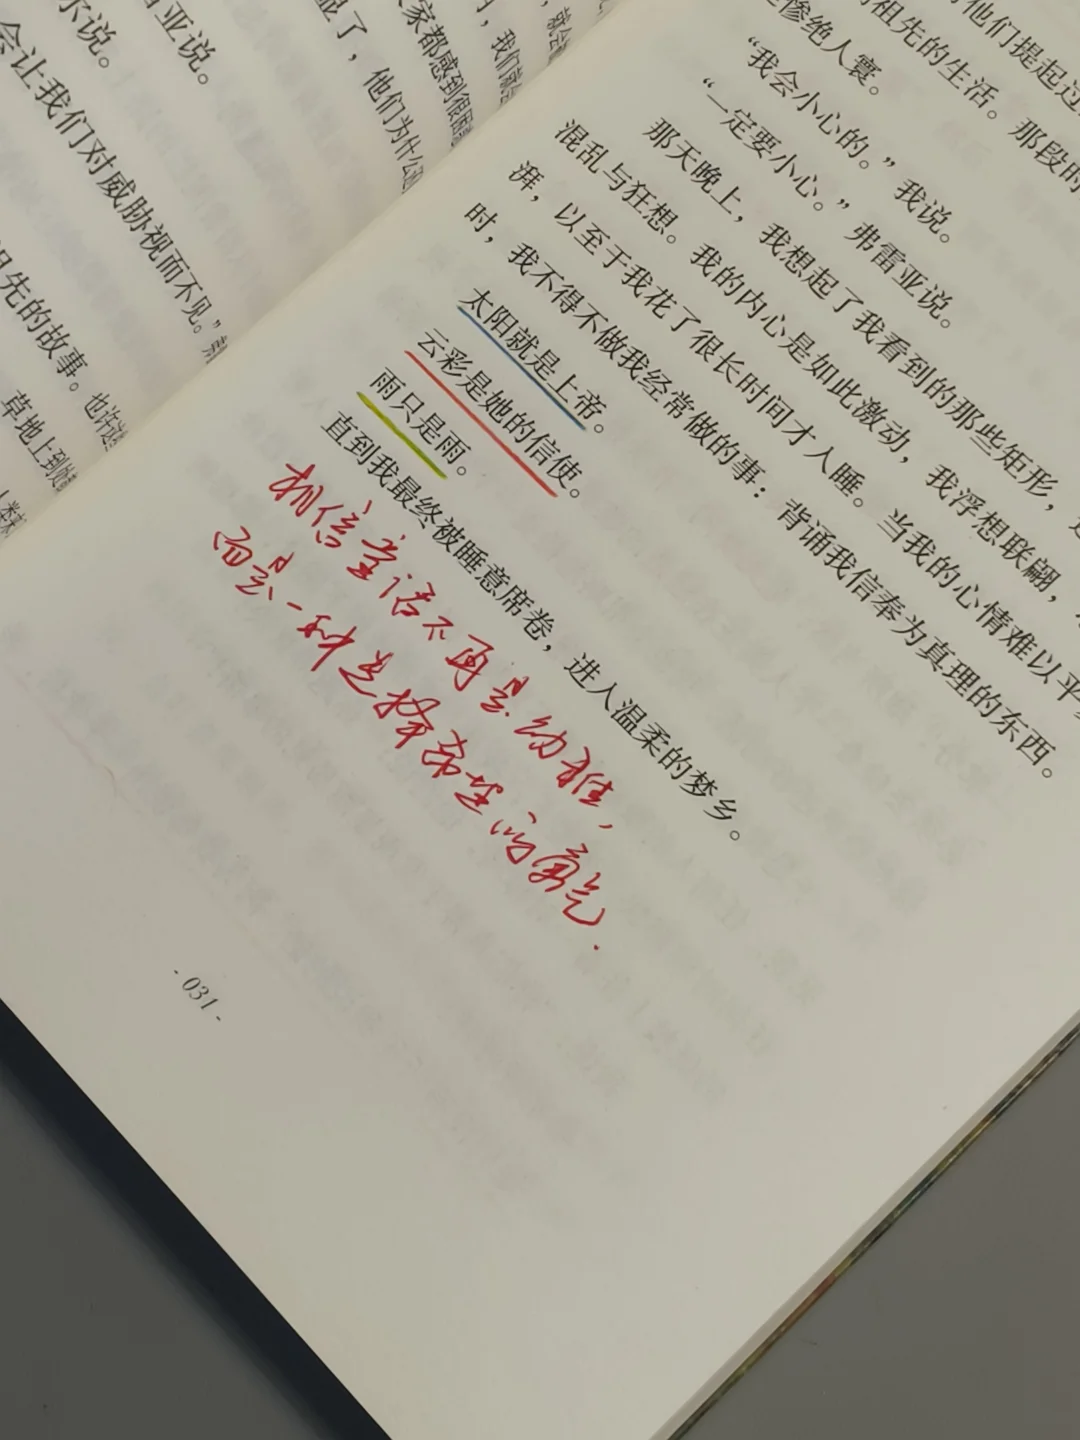 尔说。
雷亚说。
会让我们对威胁视而不见。”
祖先的故事。也许这
草地上到处
显了，他们为什么
家都感到很困
，我们就会
，就会
他们提起过
祖先的生活。那段时
惨绝人寰。
“我会小心的。”我说。
“一定要小心。”弗雷亚说。
那天晚上，我想起了我看到的那些矩形，
混乱与狂想。我的内心是如此激动，我浮想联翩，
湃，以至于我花了很长时间才入睡。当我的心情难以平
时，我不得不做我经常做的事：背诵我信奉为真理的东西。
太阳就是上帝。
云彩是她的信使。
雨只是雨。
直到我最终被睡意席卷，进入温柔的梦乡。
相信童话不再是幼稚，
而是一种选择希望的勇气.
- 031 -